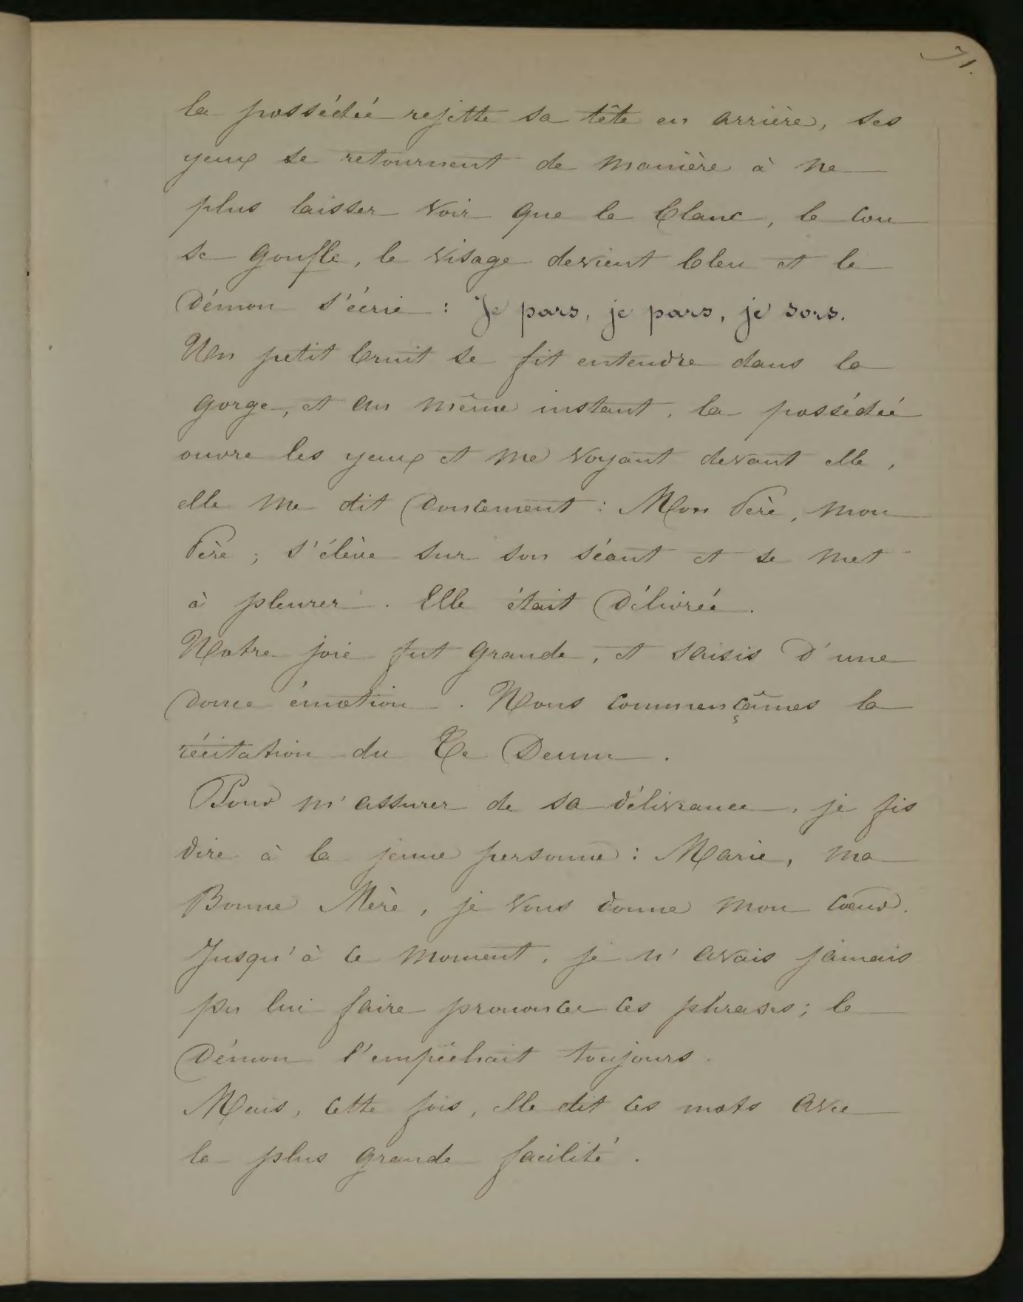 71.
la possédée rejette sa tête en arrière, ses
yeux se retournent de manière à ne
plus laisser voir que le blanc, le cou
se gonfle, le visage devient bleu et le
Démon s'écrie : Je pars, je pars, je sors.
Un petit bruit se fit entendre dans la
gorge, et au même instant, la possédée
ouvre les yeux et me voyant devant elle,
elle me dit doucement : Mon Père, mon
Père ; s'élève sur son séant et se met
à pleurer. Elle était Délivrée.
Notre joie fut grande, et saisis d'une
douce émotion. Nous commençâmes la
récitation du Te Deum.
Pour m'assurer de sa délivrance, je fis
dire à la jeune personne : Marie, ma
Bonne Mère, je vous donne mon cœur.
Jusqu'à ce moment, je n'avais jamais
pu lui faire prononcer ces phrases ; le
Démon l'empêchait toujours.
Mais, cette fois, elle dit ces mots avec
la plus grande facilité.